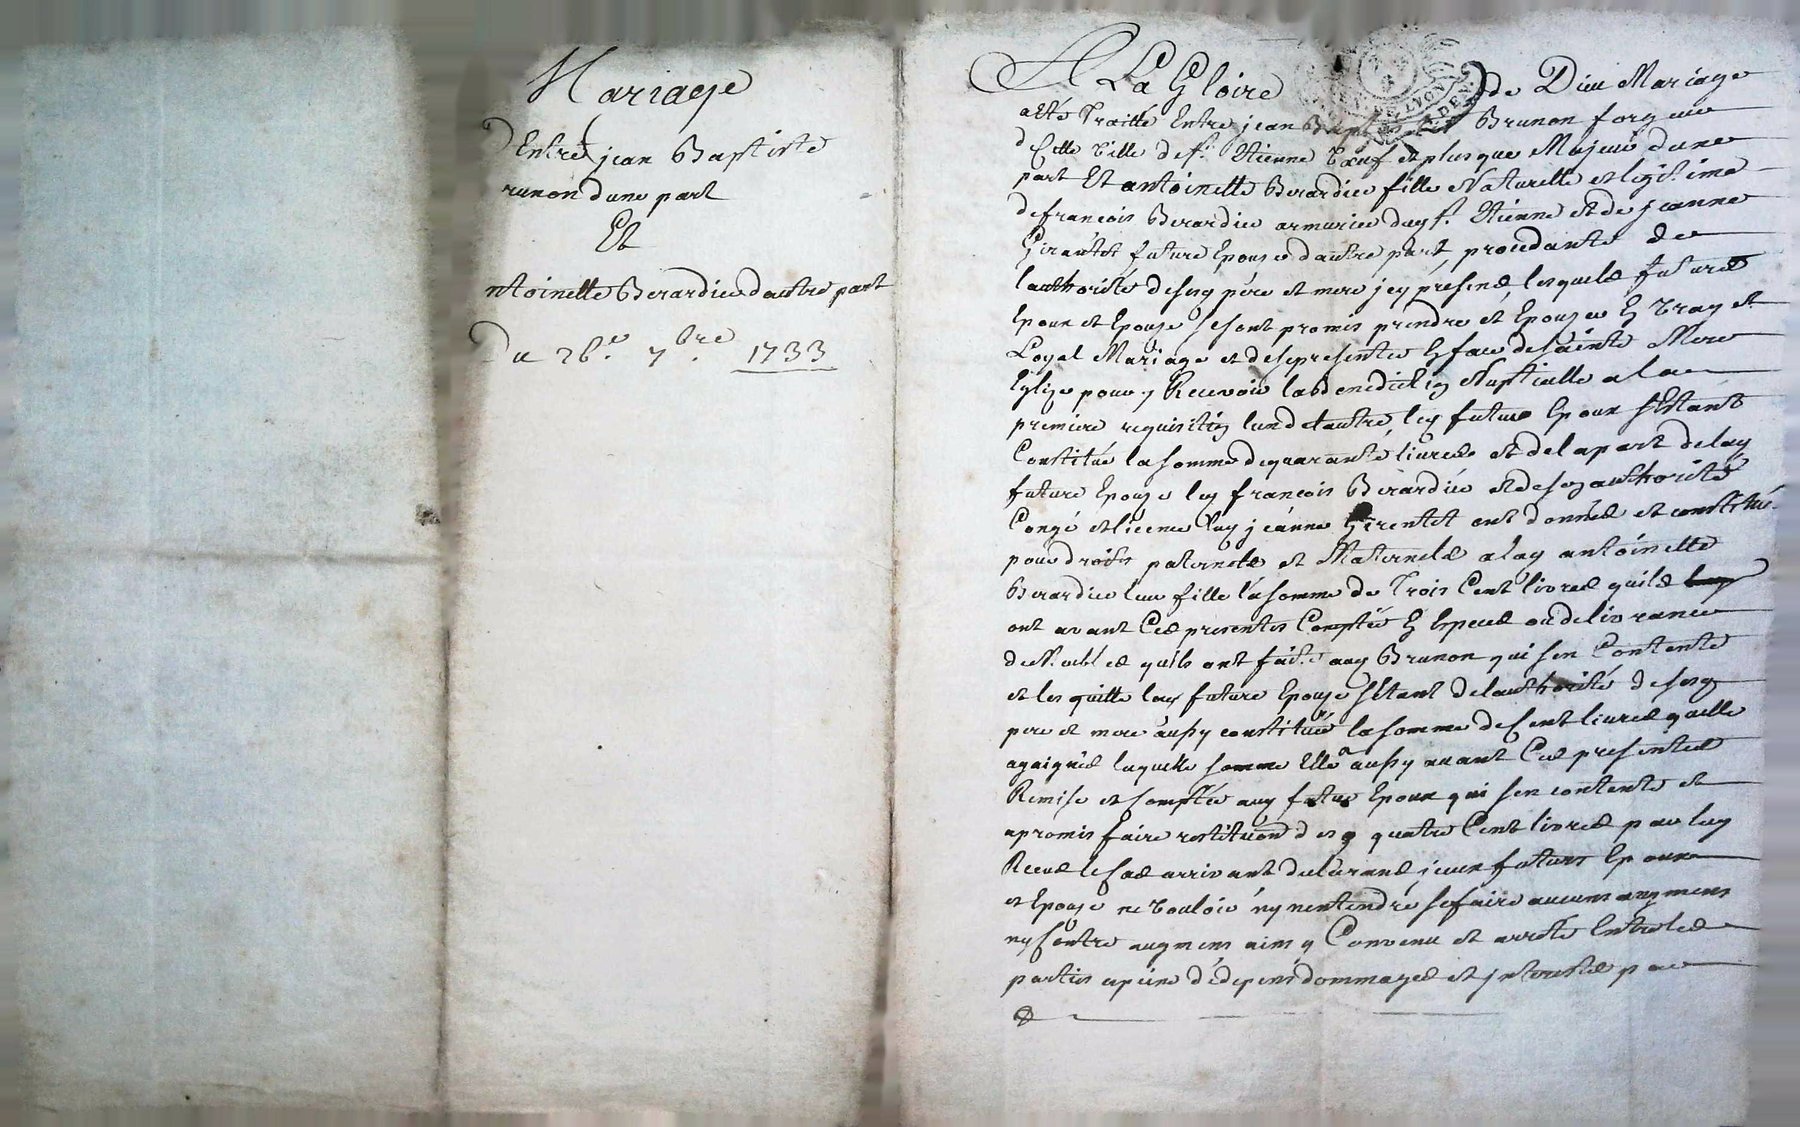 Mariage
Entre jean Baptiste
runon dune part
Et
ntoinette Berardier dautre part
Du 26e. 7bre. 1733
A La Gloire de Dieu Mariage
a été Traitté Entre jean Brunon forgeur
de cette ville de St. Etienne veuf et plus que Majeur dune
part Et antoinette Berardier fille Naturelle et legitime
de francois Berardier armurier dud St. Etienne et de jeanne
Girentet future Epouse dautre part, procedante de
lauthorité de ses père et mere jcy présens, lesquels futurs
Epoux et Epouse se sont promis prendre et Epouser En vray et
Loyal Mariage et de se presenter En face de sainte Mere
Eglize pour y Recevoir la benediction Nuptialle a la
premiere requisition lun de lautre, led futur Epoux sEstant
Constitué la somme de quarante livres et de la part de lad
future Epouse led francois Berardier et de son authorité
Congé et licence lad jeanne Girentet ont donnés et constitué
pour droits paternels et Maternels a lad antoinette
Berardier leur fille la somme de Trois Cent livres quils
ont avant Ces presentes Comptée En Especes ou delivrance
de Meubles quils ont faite aud Brunon qui sen Contente
et les quitte lad future Epouse sEtant de lauthorité de ses
pere et mere aussy constituée la somme de Cent livres quelle
a gaignés laquelle somme Elle a aussy avant Ces presentes
Remise et Comptée aud futur Epoux qui sen contente et
a promis faire restitution des d quatre Cent livres par luy
Receus le Cas arrivant declarans jceux futurs Epoux
et Epouse ne vouloir ny nentendre se faire aucuns augmens
ny Contre augmens ainsy Convenu et arreté Entre les
parties a peine de depens dommages et jnterets par